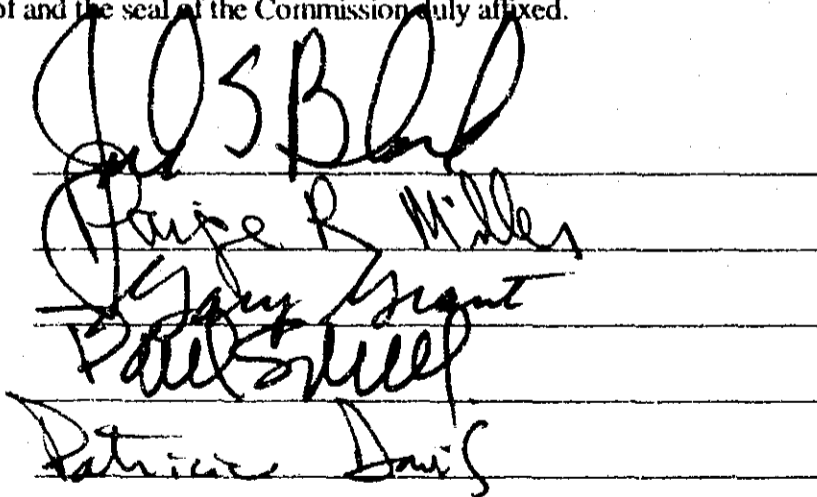 of and the seal of the Commission duly affixed.
Jack S Block
Paige R Miller
Gary Grant
Paul Schell
Patricia Davis